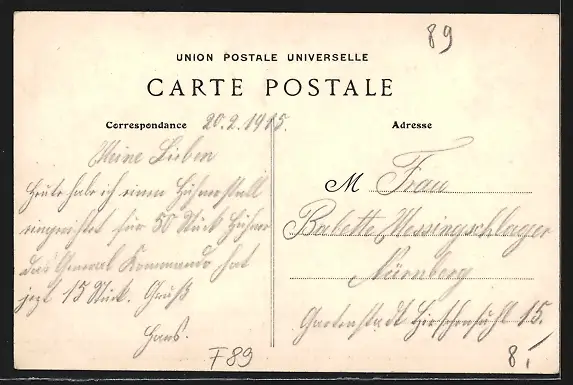 89
UNION POSTALE UNIVERSELLE
CARTE POSTALE
Correspondance 20.2.1915.
Adresse
Meine Lieben
Heute habe ich einen Hühnerstall
eingerichtet für 50 Stück Hühner
das General Kommando hat
jezt 15 Stück. Gruß
Hans.
M Frau
Babette Messingschlager
Nürnberg
Gartenstadt Hirschensuhl 15.
F89
8,-